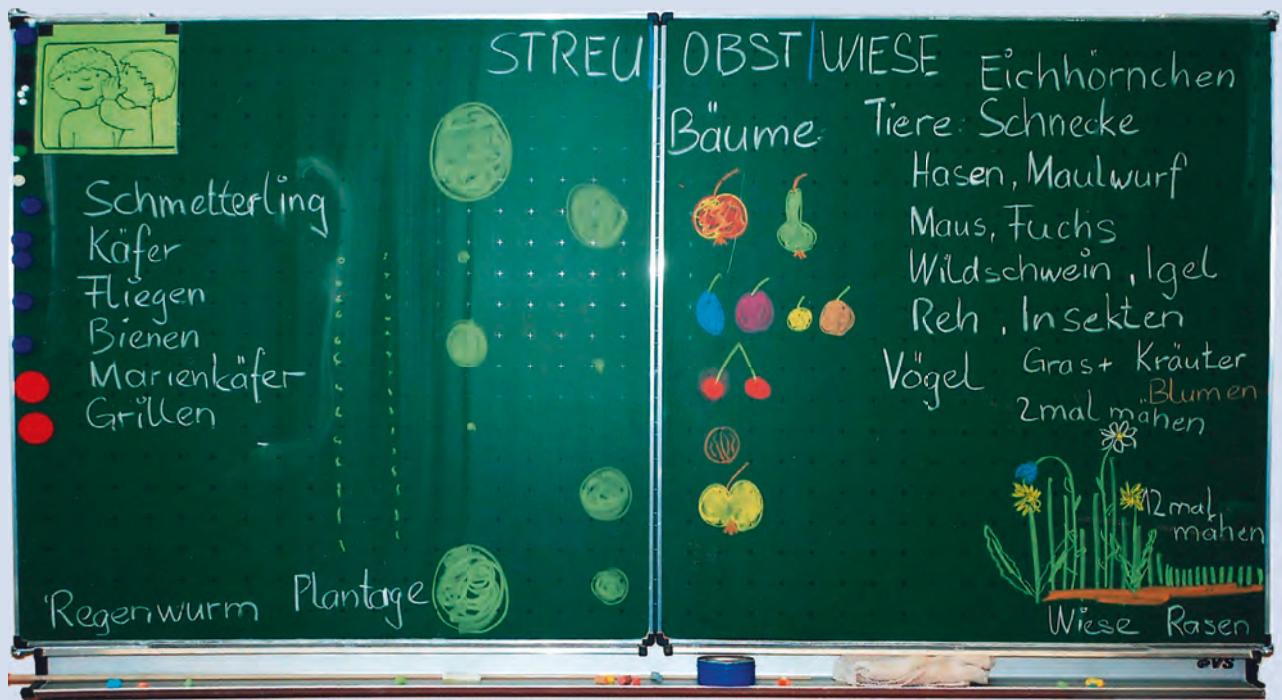 STREU OBST WIESE
Schmetterling
Käfer
Fliegen
Bienen
Marienkäfer
Grillen
Regenwurm
Plantage
Bäume:
Eichhörnchen
Tiere: Schnecke
Hasen, Maulwurf
Maus, Fuchs
Wildschwein, Igel
Reh, Insekten
Vögel
Gras + Kräuter
Blumen
2mal mähen
12mal
mähen
Wiese Rasen